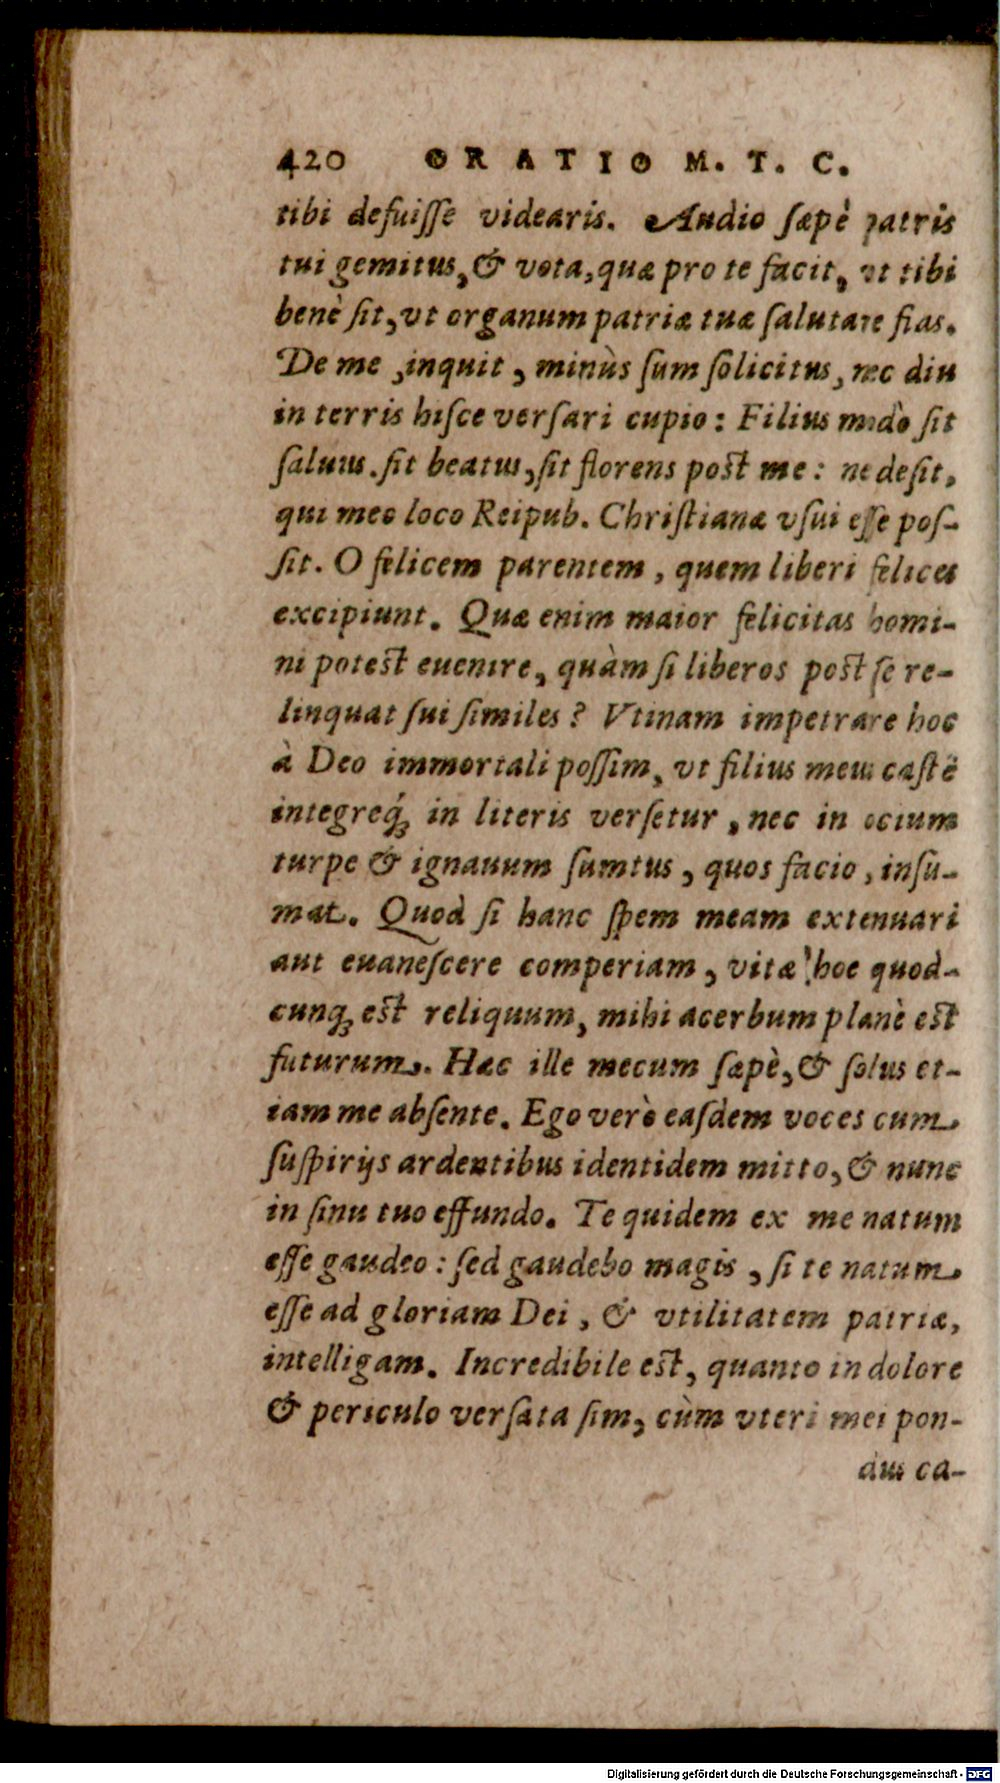 420 ORATIO M. T. C.
tibi defuiſſe videaris. Audio ſæpè patris
tui gemitus, & vota, quæ pro te facit, vt tibi
benè ſit, vt organum patriæ tuæ ſalutare fias.
De me, inquit, minùs ſum ſolicitus, nec diu
in terris hiſce verſari cupio: Filius modò ſit
ſaluus. ſit beatus, ſit florens poſt me: ne deſit,
qui meo loco Reipub. Chriſtianæ vſui eſſe poſ-
ſit. O felicem parentem, quem liberi felices
excipiunt. Quæ enim maior felicitas homi-
ni poteſt euenire, quàm ſi liberos poſt ſe re-
linquat ſui ſimiles? Vtinam impetrare hoc
à Deo immortali poſſim, vt filius meus caſtè
integreq́ꝫ in literis verſetur, nec in ocium
turpe & ignauum ſumtus, quos facio, inſu-
mat. Quod ſi hanc ſpem meam extenuari
aut euaneſcere comperiam, vitæ hoc quod-
cunqꝫ eſt reliquum, mihi acerbum planè eſt
futurum. Hæc ille mecum ſæpè, & ſolus et-
iam me abſente. Ego verò eaſdem voces cum
ſuſpirijs ardentibus identidem mitto, & nunc
in ſinu tuo effundo. Te quidem ex me natum
eſſe gaudeo: ſed gaudebo magis, ſi te natum
eſſe ad gloriam Dei, & vtilitatem patriæ,
intelligam. Incredibile eſt, quanto in dolore
& periculo verſata ſim, cùm vteri mei pon-
dus ca-
Digitalisierung gefördert durch die Deutsche Forschungsgemeinschaft - DFG